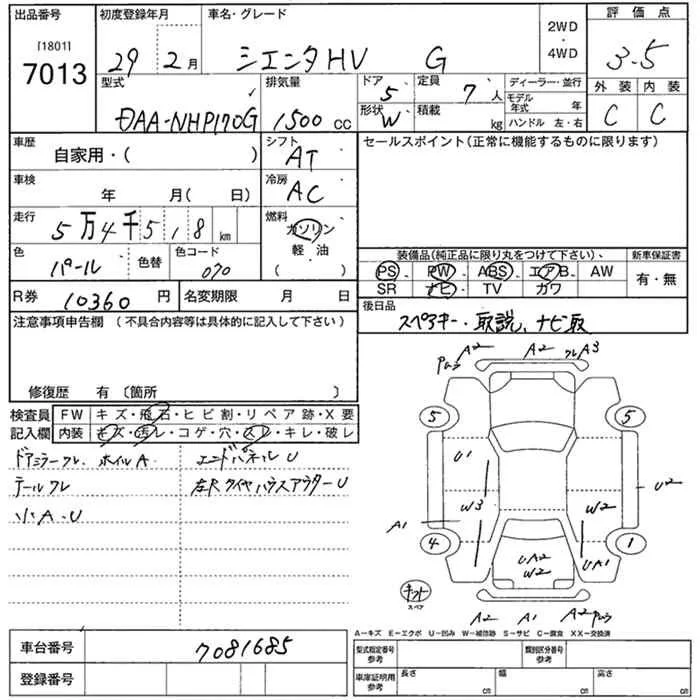 出品番号 初度登録年月 車名・グレード 評価点
[1801]
7013 29 2月 シエンタHV G 2WD・4WD 3.5
型式 排気量 ドア 5 定員 7人 ディーラー・並行 外装 内装
DAA-NHP170G 1500cc 形状 W 積載 kg モデル年式 年 ハンドル 左・右 C C
車歴 自家用・( ) シフト AT セールスポイント(正常に機能するものに限ります)
車検 年 月( 日) 冷房 AC
走行 5万4千518km 燃料 ガソリン 軽・油 ( )
色 パール 色替 色コード 070 装備品(純正品に限り丸をつけて下さい)、 新車保証書
PS PW ABS エアB AW 有・無
SR ナビ TV カワ
R券 10360円 名変期限 月 日 後日品
スペアキー・取説、ナビ取
注意事項申告欄(不具合内容等は具体的に記入して下さい)
修復歴 有 〔箇所 〕
A2 A2 フレA3
検査員 FW キズ・飛石・ヒビ割・リペア跡・X要
記入欄 内装 キズ・汚レ・コゲ・穴・スレ・キレ・破レ
ドアミラーフレ、ホイルA エンドパネルU
テールフレ 左R タイヤハウスアウターU
小A、U
5 5
U1 U2
W3 W2
A1
4 1
UA2
W2
UA1
キット
スペア
A2 A1 A2
A−キズ E−エクボ U−凹み W−補修跡 S−サビ C−腐食 XX−交換済
車台番号 7081685 型式指定番号 参考 類別区分番号 参考
登録番号 車庫証明用 参考 長さ cm 幅 cm 高さ cm